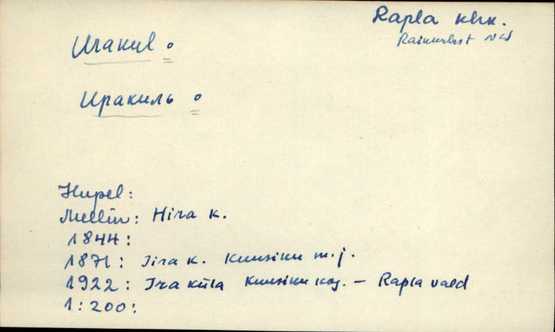 Rapla khk.
vld
Irakül o
Иракиль o
Hupel:
Mellin: Hira k.
1844:
1871: Iira k. Kuusiku m. j.
1922: Ira küla Kuusiku kog. – Rapla vald
1:200: